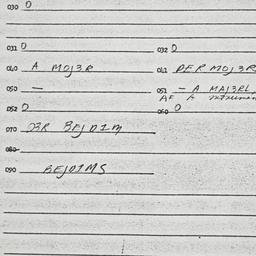 030 0
031 0 032 0
040 A MOJ3R 042 PER MOJ3R
050 — 051 — A MAJ3RL
052 0 060 0
070 03R BEJ01M
080
090 BEJ01MS